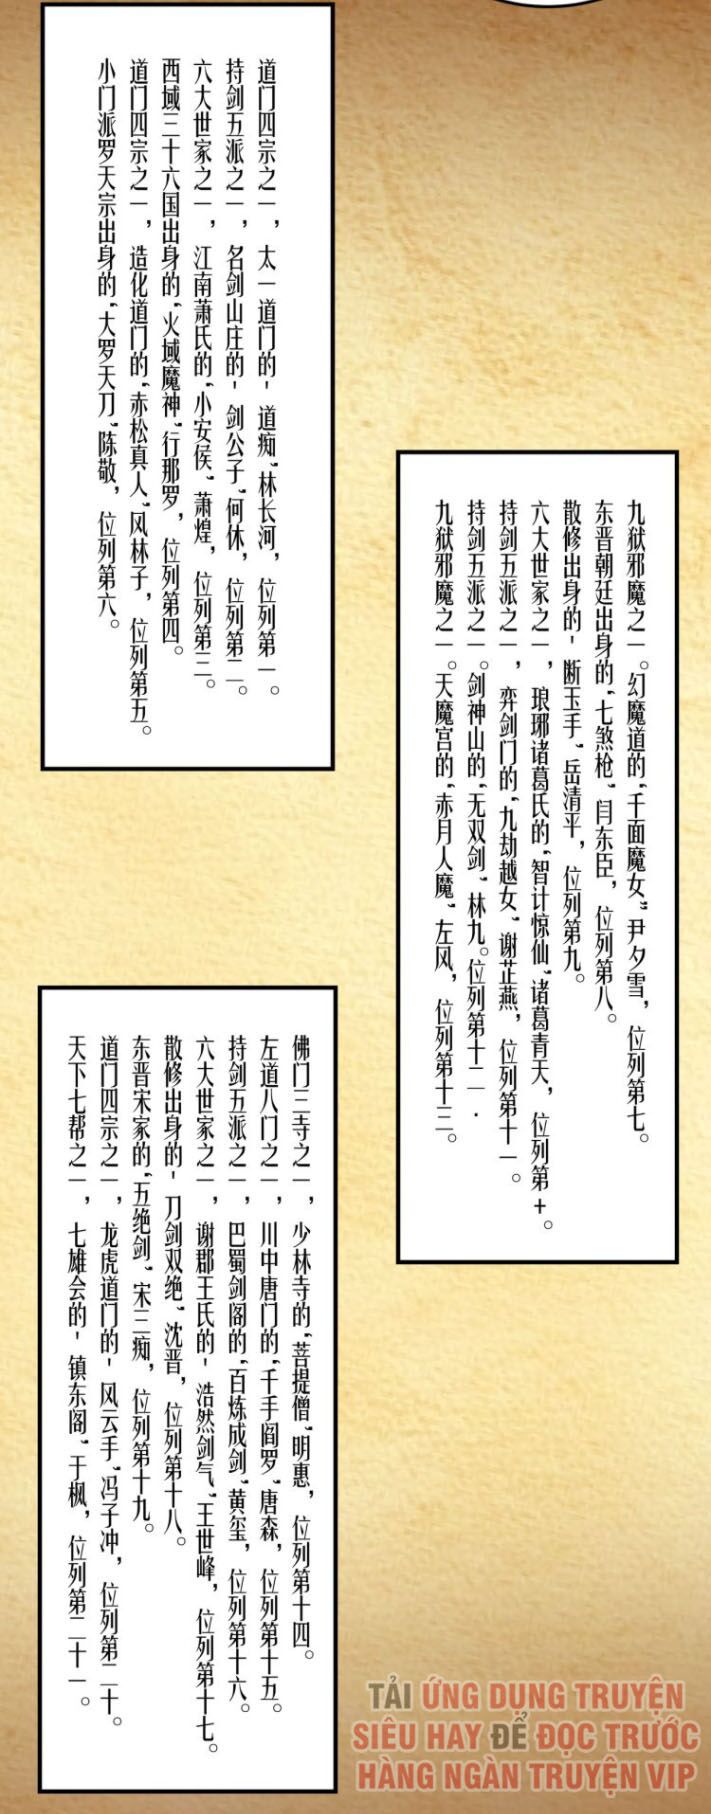 道门四宗之一，太一道门的“道痴”林长河，位列第一。
持剑五派之一，名剑山庄的“剑公子”何休，位列第二。
六大世家之一，江南萧氏的“小安侯”萧煌，位列第三。
西域三十六国出身的“火域魔神”行那罗，位列第四。
道门四宗之一，造化道门的“赤松真人”风林子，位列第五。
小门派罗天宗出身的“大罗天刀”陈敬，位列第六。
九狱邪魔之一。幻魔道的“千面魔女”尹夕雪，位列第七。
东晋朝廷出身的“七煞枪”闫东臣，位列第八。
散修出身的“断玉手”岳清平，位列第九。
六大世家之一，琅琊诸葛氏的“智计惊仙”诸葛青天，位列第+。
持剑五派之一，弈剑门的“九劫越女”谢芷燕，位列第十一。
持剑五派之一。剑神山的“无双剑”林九。位列第十二.
九狱邪魔之一。天魔宫的“赤月人魔”左风，位列第十三。
佛门三寺之一，少林寺的“菩提僧”明惠，位列第十四。
左道八门之一，川中唐门的“千手阎罗”唐森，位列第十五。
持剑五派之一，巴蜀剑阁的“百炼成剑”黄玺，位列第十六。
六大世家之一，谢郡王氏的“浩然剑气”王世峰，位列第十七。
散修出身的“刀剑双绝”沈晋，位列第十八。
东晋宋家的“五绝剑”宋三痴，位列第十九。
道门四宗之一，龙虎道门的“风云手”冯子冲，位列第二十。
天下七帮之一，七雄会的“镇东阁”于枫，位列第二十一。
TẢI ỨNG DỤNG TRUYỆN
SIÊU HAY ĐỂ ĐỌC TRƯỚC
HÀNG NGÀN TRUYỆN VIP